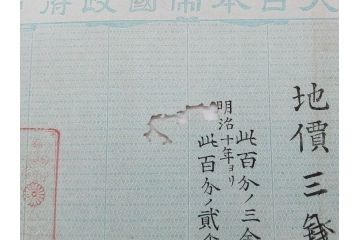 大日本帝國政府
地價三
此百分ノ三
明治十年ヨリ
此百分ノ貳